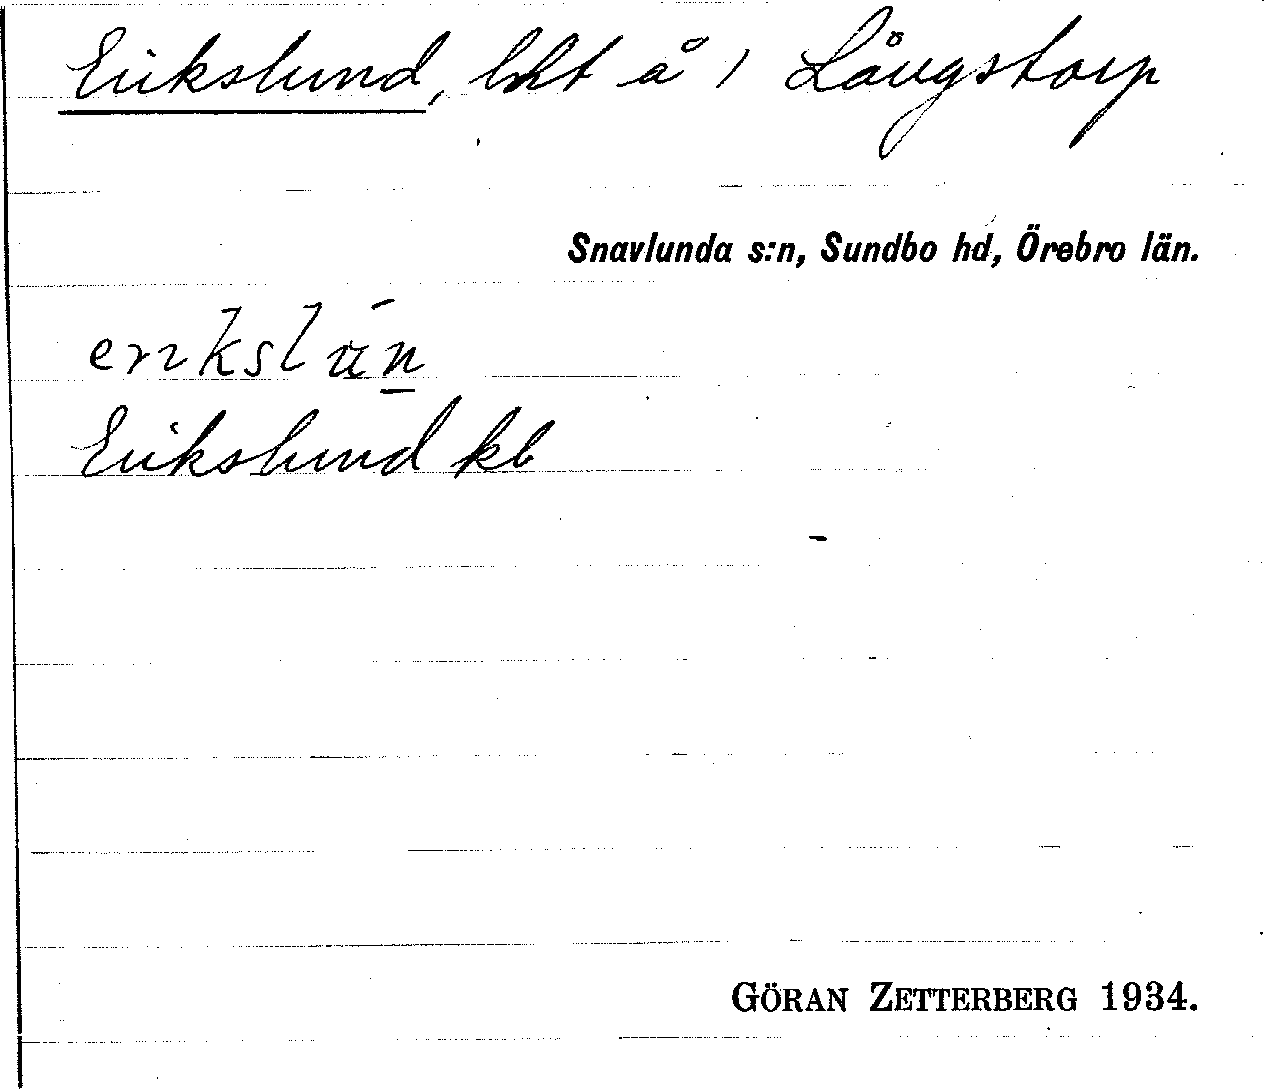 Erikslund, lht å 1 Långstorp
Snavlunda s:n, Sundbo hd, Örebro län.
Erikslund kb
GÖRAN ZETTERBERG 1934.